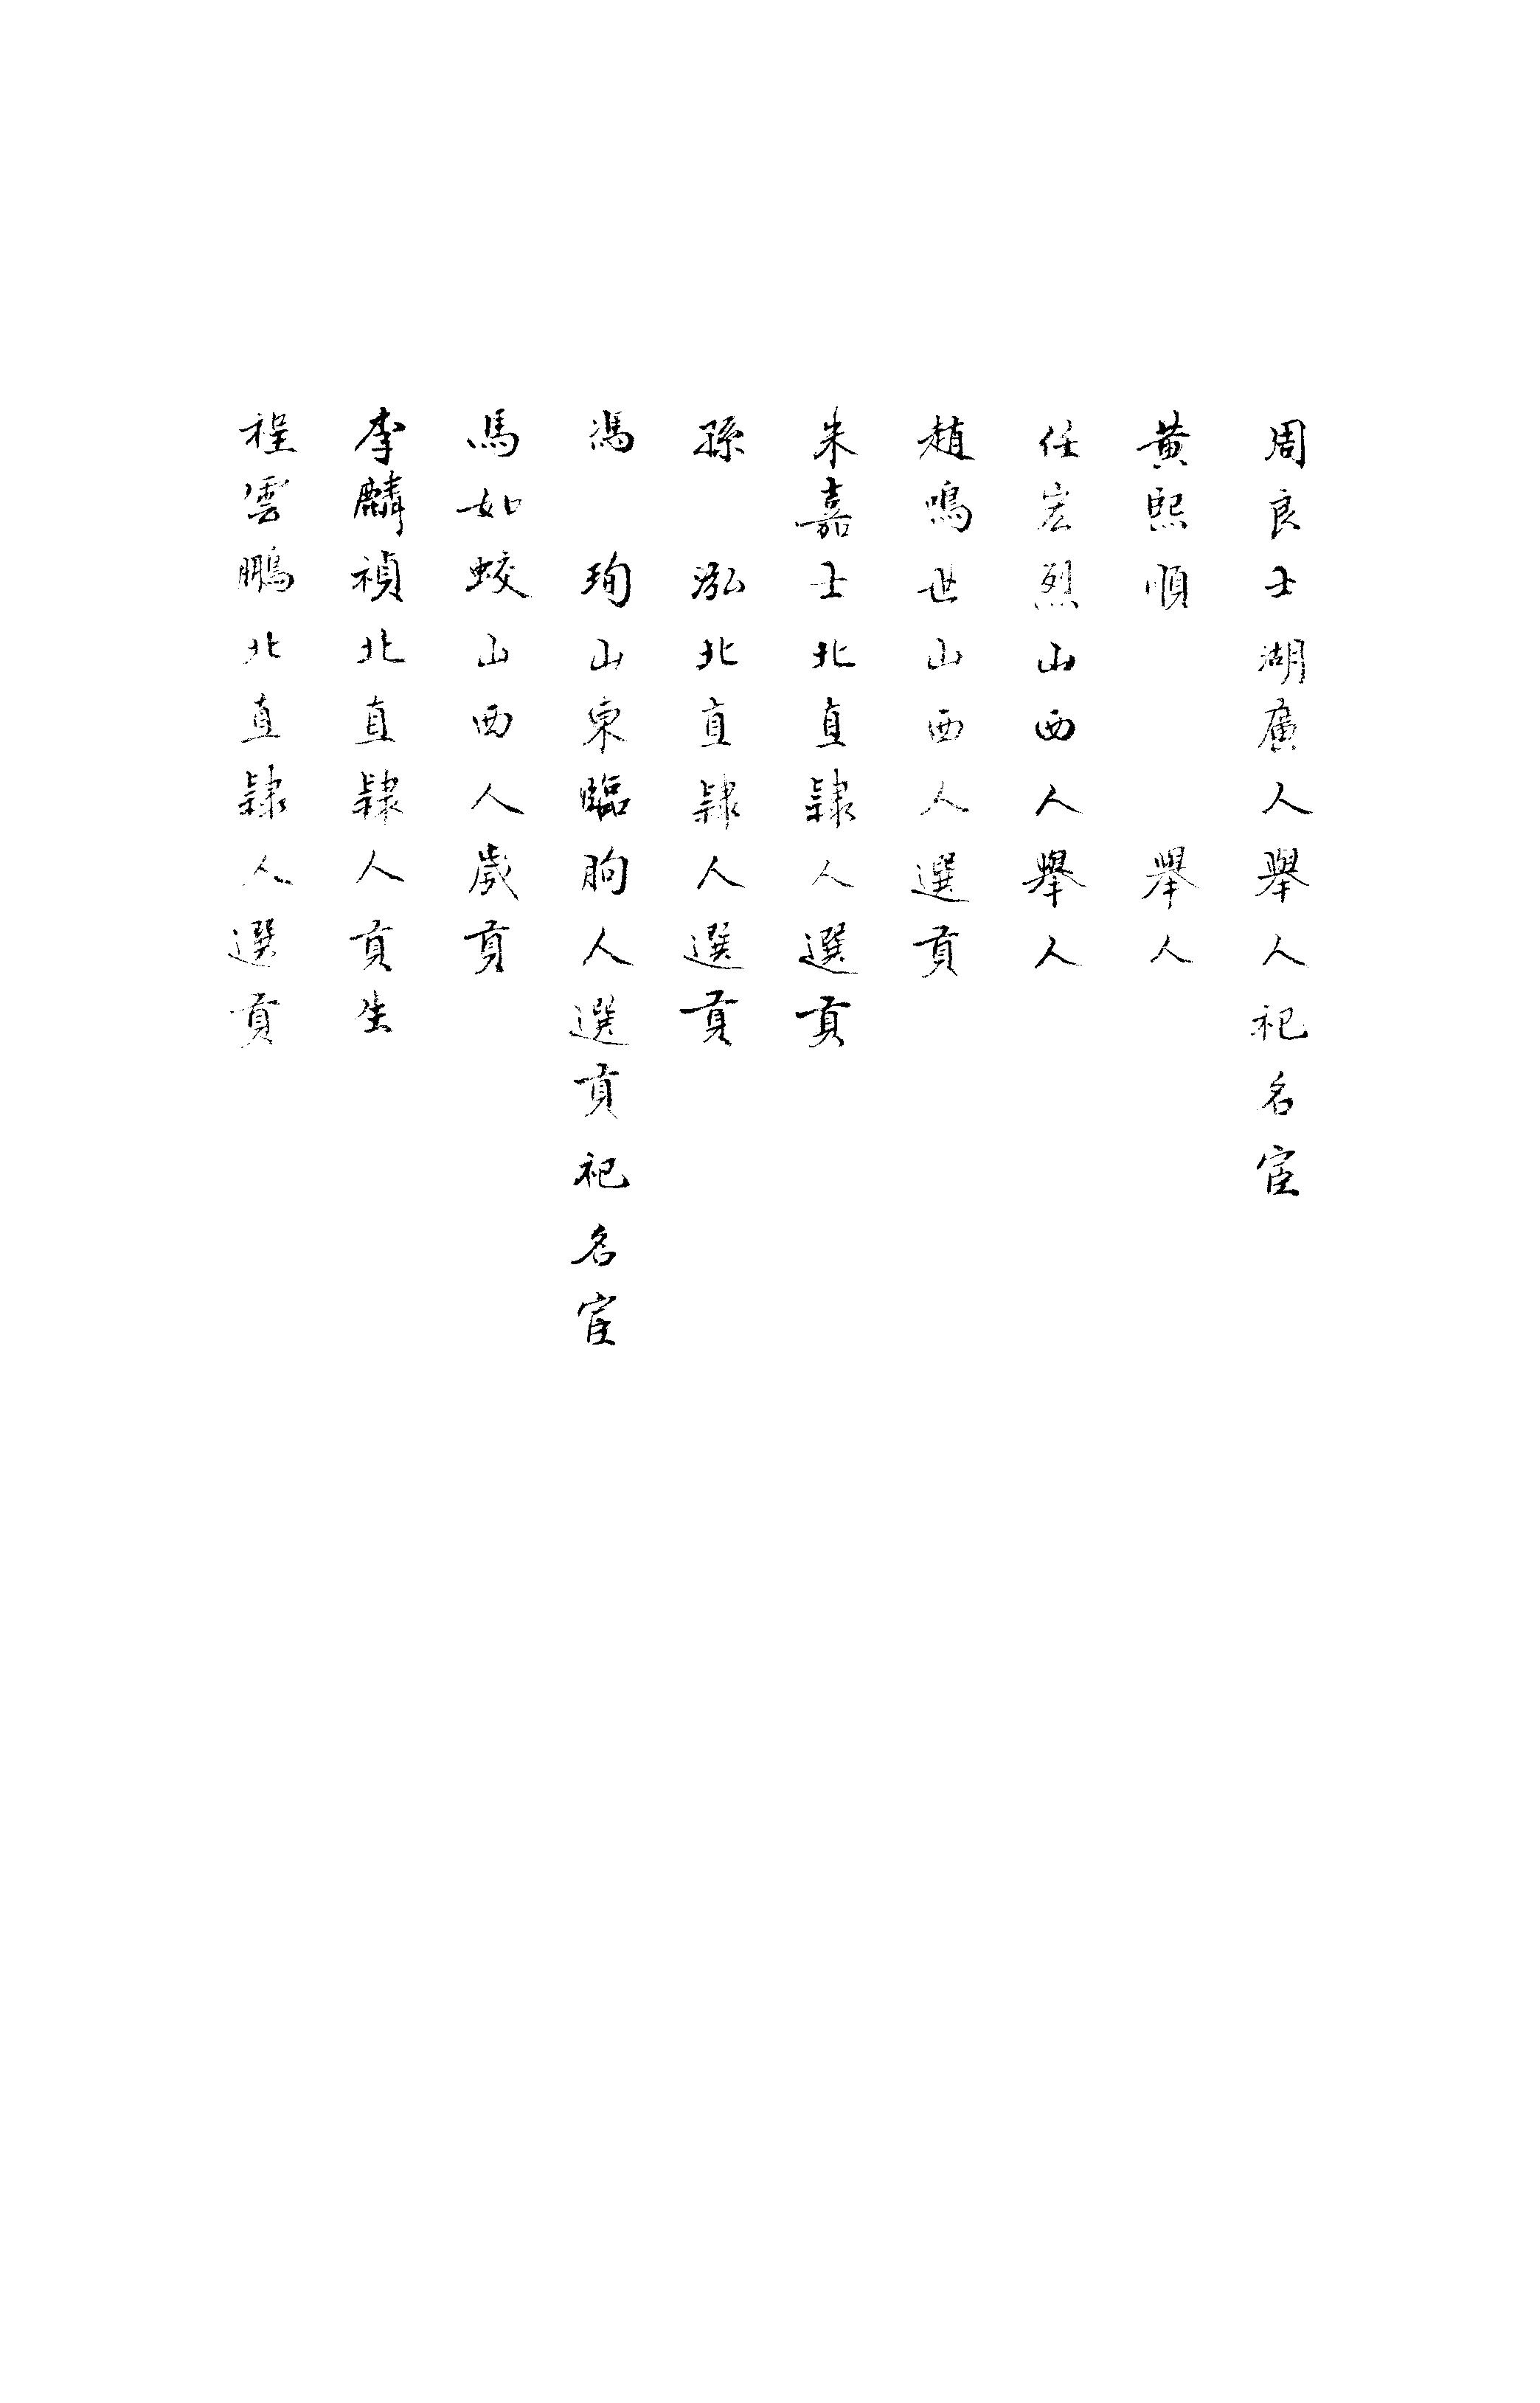 周良士湖廣人舉人祀名宦
黃熙順　　　舉人
任宏烈山西人舉人
趙鳴世山西人選貢
朱嘉士北直隸人選貢
孫　泓北直隸人選貢
馮　珣山東臨朐人選貢祀名宦
馬如蛟山西人歲貢
李麟禎北直隸人貢生
程雲鵬北直隸人選貢